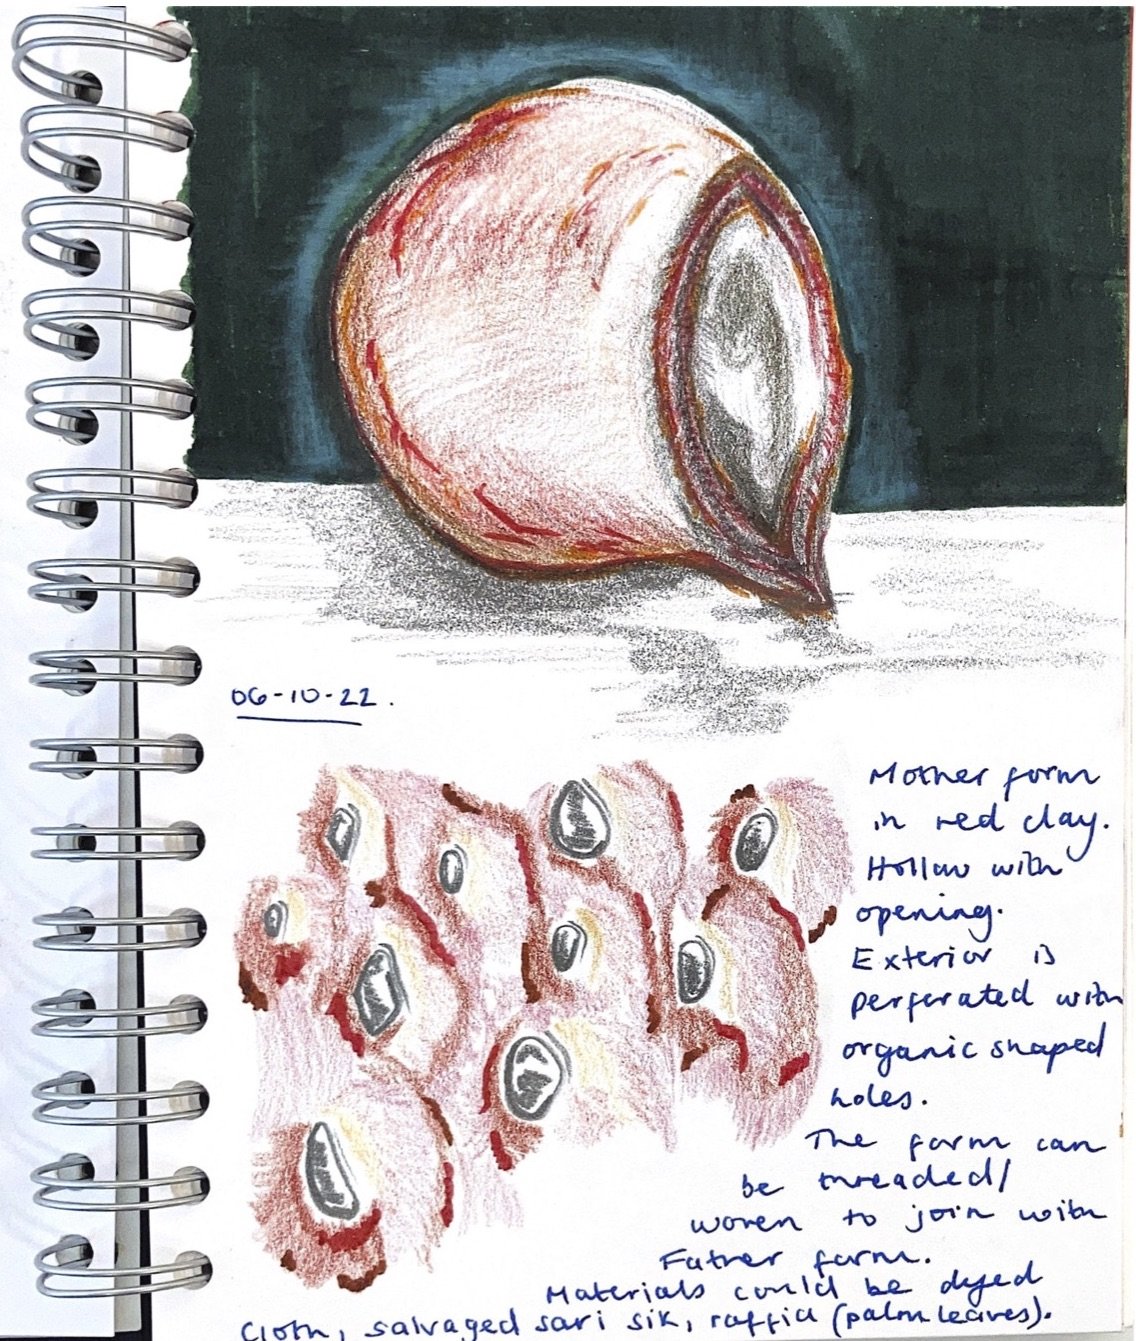 06-10-22.
Mother form
in red clay.
Hollow with
opening.
Exterior is
perforated with
organic shaped
holes.
The form can
be threaded/
woven to join with
Father form.
Materials could be dyed
cloth, salvaged sari sik, raffia (palm leaves).